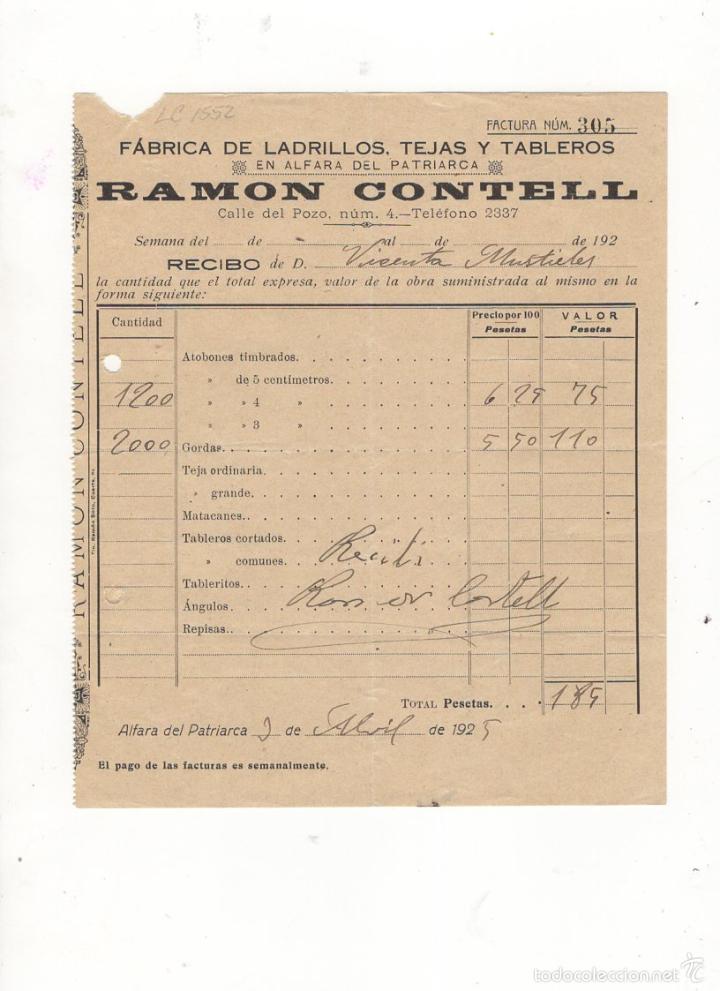 LC 1552
FACTURA NÚM. 305
FÁBRICA DE LADRILLOS, TEJAS Y TABLEROS
EN ALFARA DEL PATRIARCA
RAMON CONTELL
Calle del Pozo, núm. 4.—Teléfono 2337
Semana del de al de de 192
RECIBO de D. Vicenta Mustieles
la cantidad que el total expresa, valor de la obra suministrada al mismo en la
forma siguiente:
Cantidad Precio por 100 VALOR
Pesetas Pesetas
Atobones timbrados.
» de 5 centímetros.
1200 » » 4 » 6 25 75
» » 3 »
2000 Gordas. 5 50 110
Teja ordinaria
» grande.
Matacanes.
Tableros cortados. Recibí
» comunes
Tableritos
Ángulos. Ramon Contell
Repisas..
TOTAL Pesetas. 185
Alfara del Patriarca 3 de Abril de 1925
El pago de las facturas es semanalmente.
RAMON CONTELL
todocoleccion.net